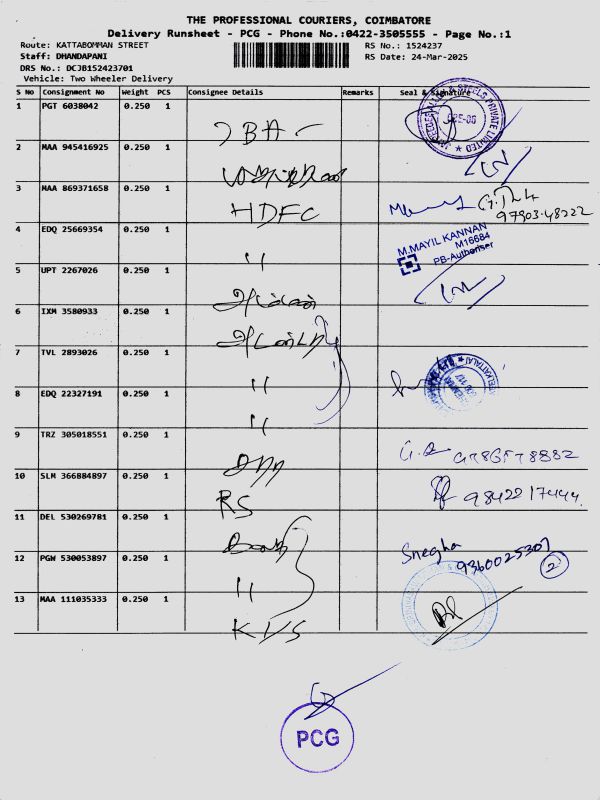 THE PROFESSIONAL COURIERS, COIMBATORE
Delivery Runsheet - PCG - Phone No.:0422-3505555 - Page No.:1
Route: KATTABOMMAN STREET RS No.: 1524237
Staff: DHANDAPANI RS Date: 24-Mar-2025
DRS No.: DCJB152423701
Vehicle: Two Wheeler Delivery
S No Consignment No Weight PCS Consignee Details Remarks Seal & Signature
1 PGT 6038042 0.250 1
2 MAA 945416925 0.250 1
3 MAA 869371658 0.250 1
HDFC
97903.48222
4 EDQ 25669354 0.250 1
"
M.MAYIL KANNAN
M16684
PB-Authoriser
5 UPT 2267026 0.250 1
6 IXM 3580933 0.250 1
7 TVL 2893026 0.250 1
"
8 EDQ 22327191 0.250 1
"
9 TRZ 305018551 0.250 1
10 SLM 366884897 0.250 1
RS
9842217444
11 DEL 530269781 0.250 1
Snegha
9360025307
12 PGW 530053897 0.250 1
"
2
13 MAA 111035333 0.250 1
KVS
PCG